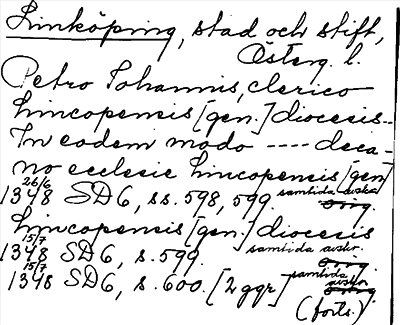 Linköping, stad och stift,
Österg. l.
Petro Johannis, clerico
lincopensis [gen.] diocesis --
In eodem modo ---- deca-
no ecclesie lincopensis [gen]
26/6
1348 SD6, ss. 598, 599. samtida avskr.
Orig.
lincopensis [gen.] diocesis
15/7
1348 SD6, s. 599. samtida avskr.
Orig.
15/7
1348 SD6, s. 600. [2 ggr] samtida avskr.
Orig.
(forts.)